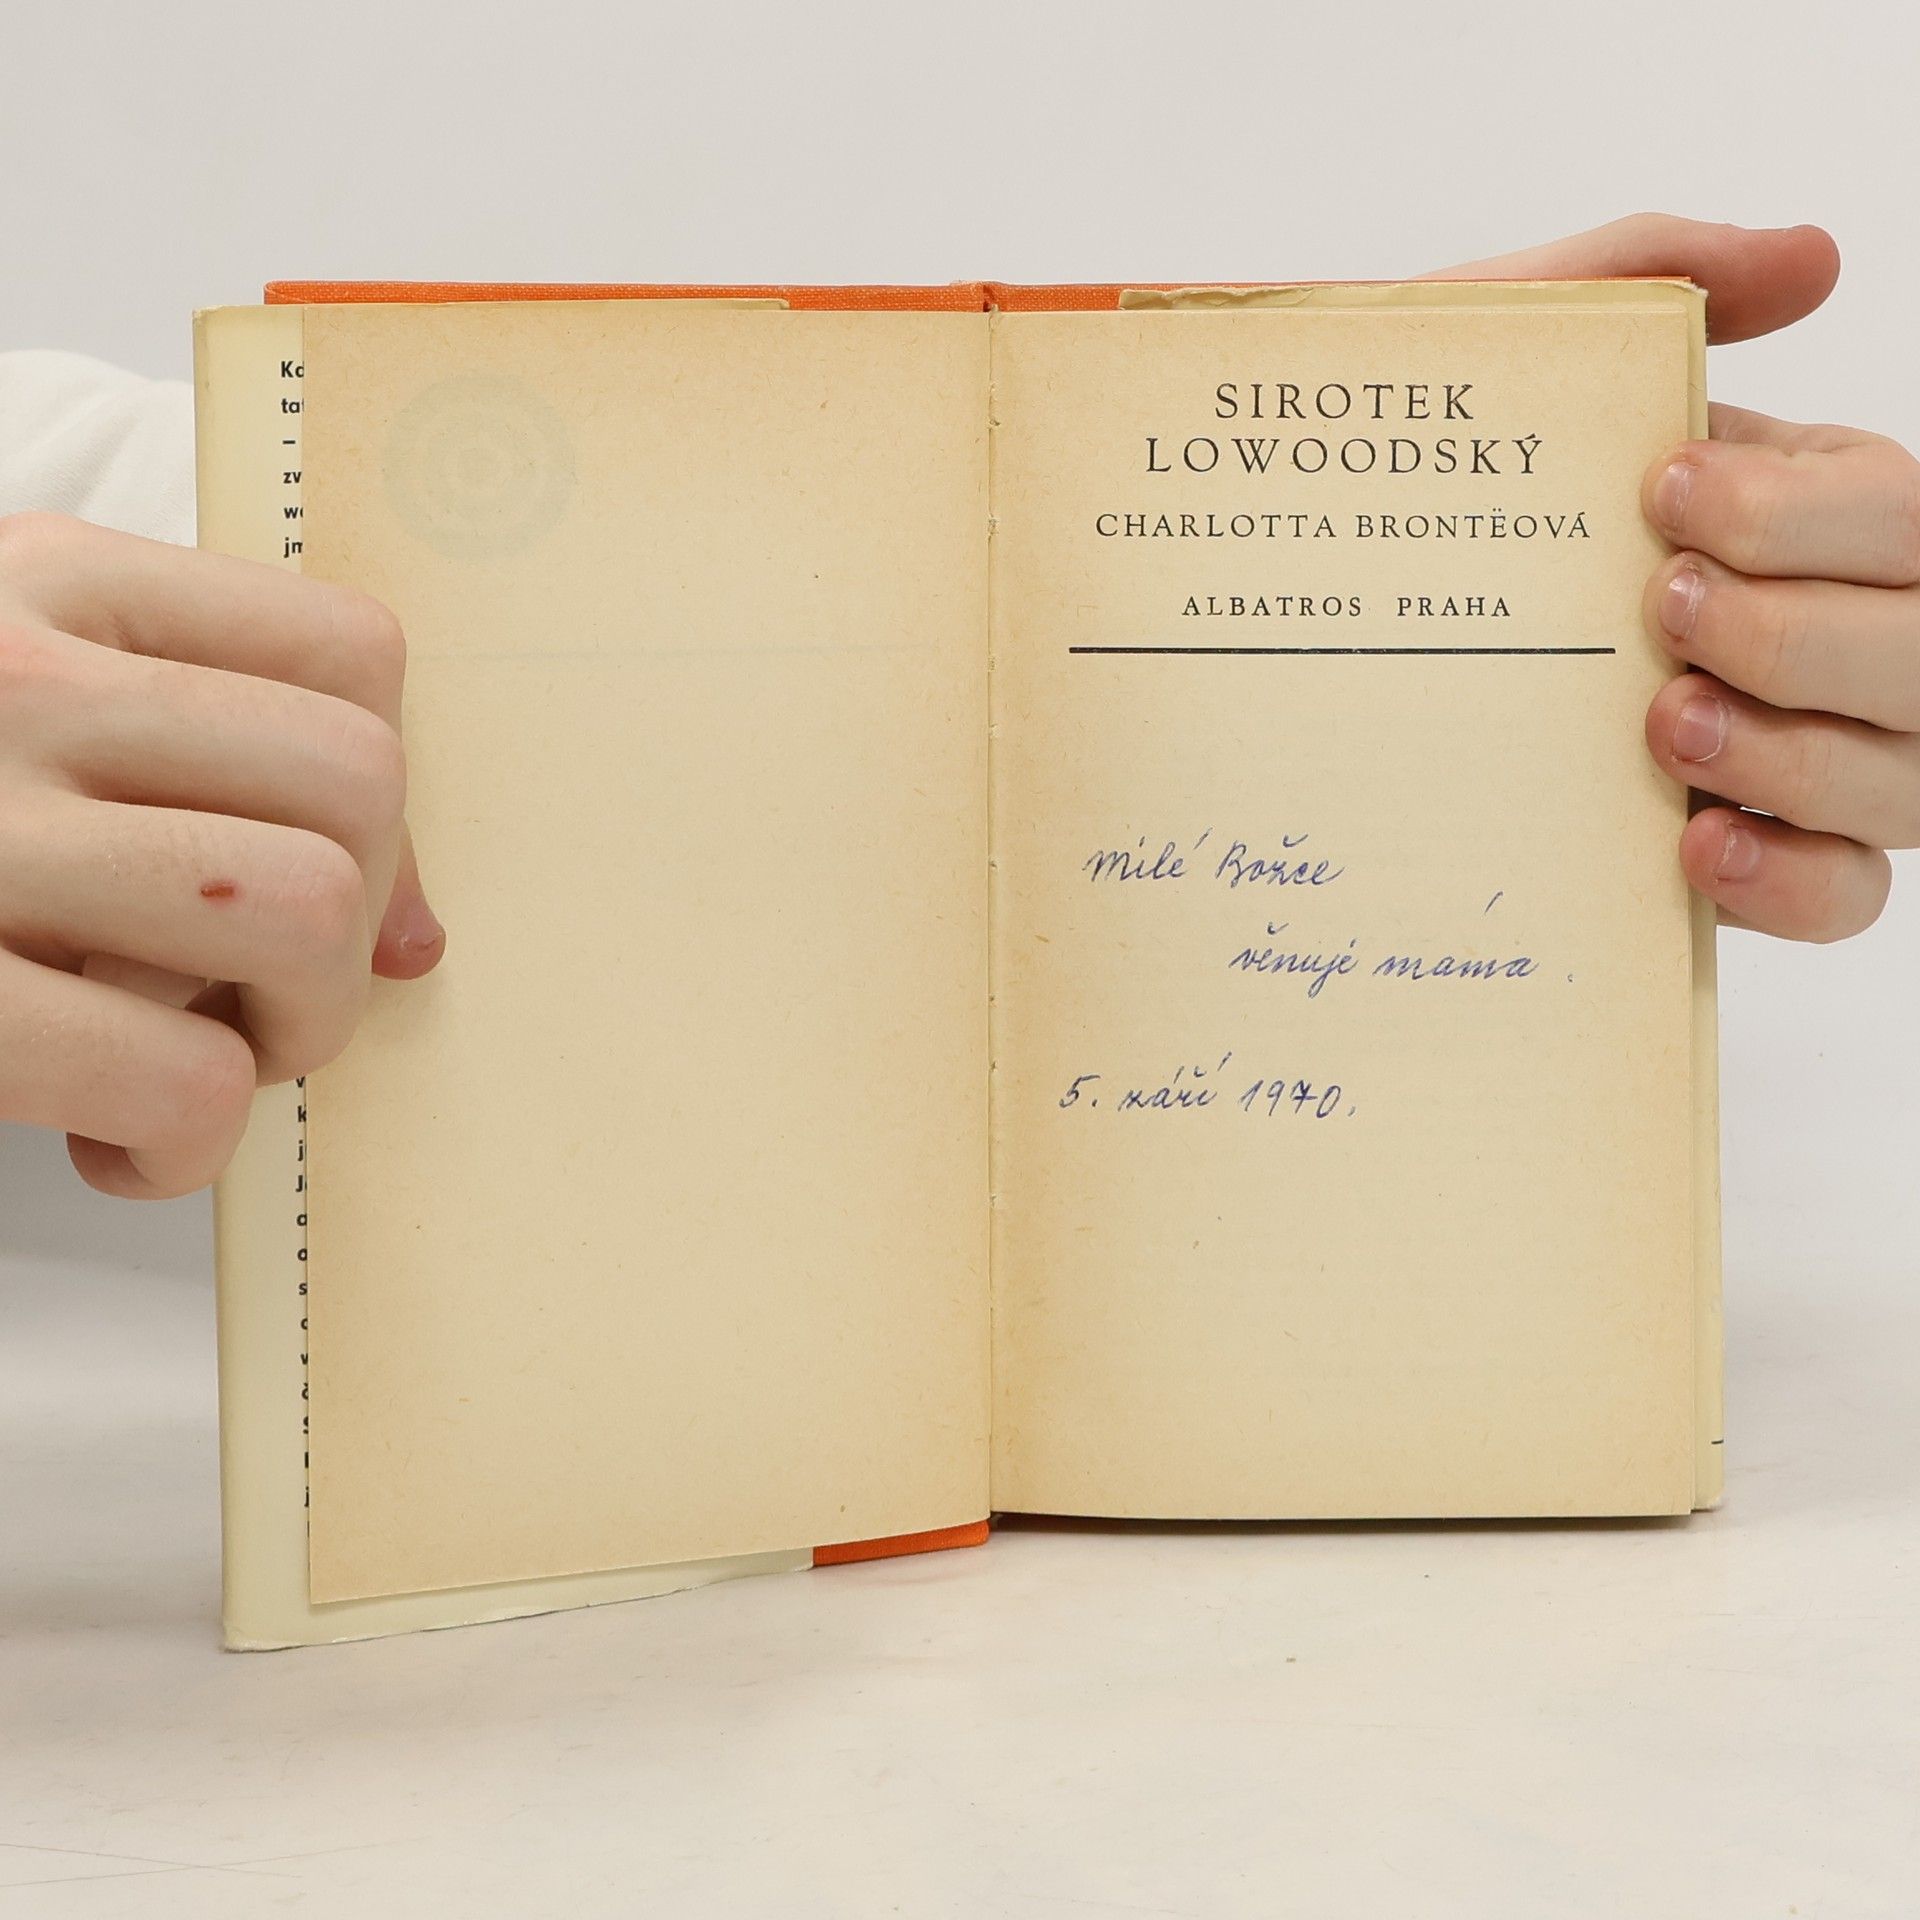 Kd
tat
–
zv
jm
v
k
j
a
o
s
v
j
SIROTEK
LOWOODSKÝ
CHARLOTTA BRONTËOVÁ
ALBATROS PRAHA
Milé Božce
věnuje máma.
5. září 1970.